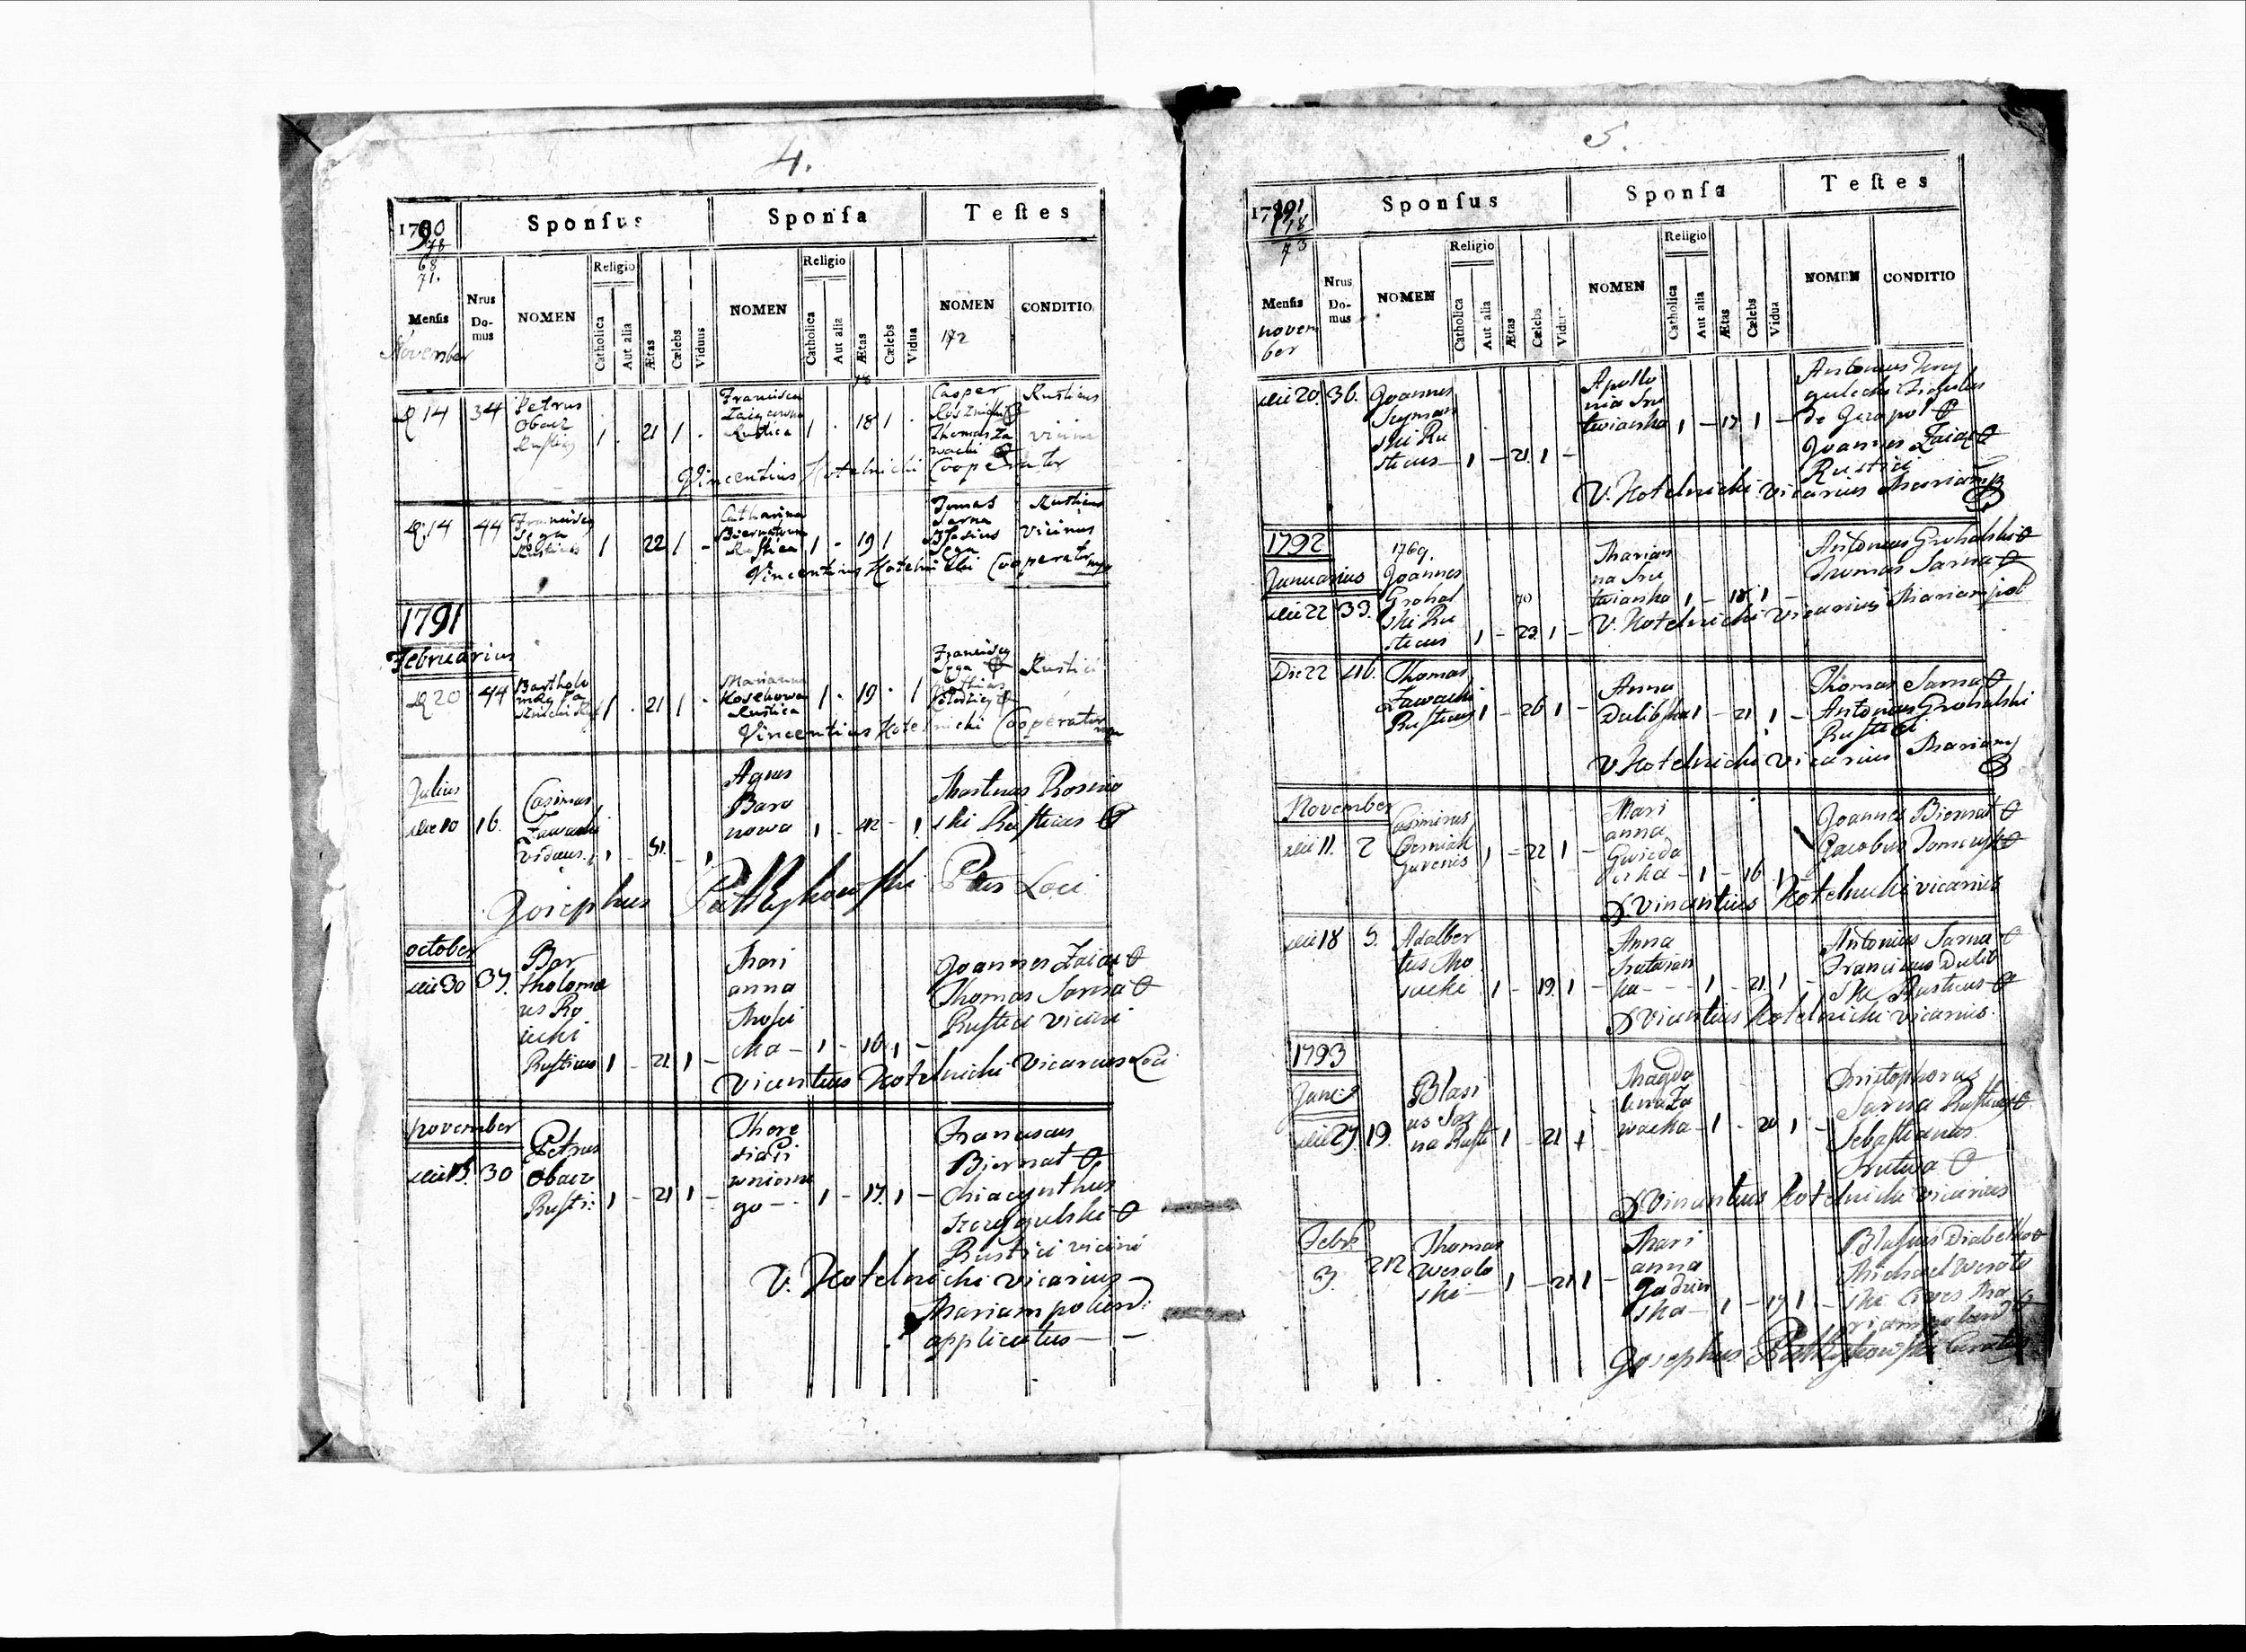 4.
1790
Sponsus Sponsa Testes
78
68
71.
Mensis
Nrus Do-mus
NOMEN
Religio
Catholica
Aut alia
Ætas
Cælebs
Viduus
NOMEN
Religio
Catholica
Aut alia
Ætas
Cælebs
Vidua
NOMEN
CONDITIO
172
November
18
D 14 34 Petrus
Obacz
Rusticus 1 . 21 1 .
Francisca
Rustica 1 . 18 1 .
Casper Rusticus
Thomas Za
wacki
Vincentius Kotelnicki Cooperator
D. 14 44 Franciscus
Sega
Rusticus 1 22 1 -
Catharina
Biernatowna
Rustica 1 - 19 1
Tomas Rusticus
Sarna Vicinus
Blasius
Sega
Vincentius Kotelnicki Cooperator mp
1791
Februarius
D 20 44 Bartholo
1 . 21 1 .
Marianna
Kosekowa
Rustica 1 . 19 . 1
Franciscus
Sega Rustici
Mathias
Vincentius Kotelnicki Cooperator
Julius
die 10 16. Casimirus
Zawacki
viduus. 1 - 51. - 1
Agnes
Bara
nowa 1 - 42 - 1
Martinus Rosino
ski Rusticus
Josephus Pattlykowski Par Loci
October
die 30 37. Bar
tholome
us Ro
sicki
Rusticus 1 - 21 1 -
Mari
anna
Mosci
cka - 1 - 16 1 -
Joannes Zaiac
Thomas Sarna
Rustici vicini
Vicentius Kotelnicki Vicarius Loci
November
die 13. 30 Petrus
Obacz
Rusti: 1 - 21 1 -
There
sia Pi
wniczne
go - 1 - 17. 1 -
Franciscus
Biernat
Chiacynthus
Szczygulski
Rustici vicini
V. Kotelnicki vicarius
Mariampoliens:
applicatus
5.
1791
78
73
Sponsus Sponsa Testes
Mensis
Nrus Do-mus
NOMEN
Religio
Catholica
Aut alia
Ætas
Cælebs
Viduus
NOMEN
Religio
Catholica
Aut alia
Ætas
Cælebs
Vidua
NOMEN
CONDITIO
novem
ber
die 20. 36. Joannes
Szyman
ski Ru
sticus 1 - 21. 1 -
Apollo
nia Sru
twianka 1 - 17 1 -
Antonius Szczy
gulecki Figulus
de Jezupol
Joannes Zaiac
Rustici
V. Kotelnicki vicarius Mariamp
1792
Januarius
die 22 33. 1769.
Joannes
Grohal
ski Ru
sticus 1 - 23 1 -
70
Marian
na Sru
twianka 1 - 18 1 -
Antonius Grohalski
Thomas Sarna
V. Kotelnicki Vicarius Mariampol
Die 22 46. Thomas
Zawacki
Rusticus 1 - 26 1 -
Anna
Dulibska 1 - 21 1 -
Thomas Sarna
Antonius Grohalski
Rustici
V. Kotelnicki vicarius Mariamp
November
die 11. 2 Casimirus
Czerniak
Juvenis 1 - 22 1 -
Mari
anna
Gwizda
1 - 16 1 -
Joannes Biernat
Jacobus
D Vincentius Kotelnicki vicarius
die 18 5. Adalber
tus Mo
sucki 1 - 19. 1 -
Anna
Srutwian
ka - 1 - 21. 1 -
Antonius Sarna
Franciscus Dulib
ski Rusticus
D Vicentius Kotelnicki vicarius.
1793
Janu:
die 27. 19. Blasi
us Sar
na Rusti 1 - 21 1
Magda
lena Za
wacka - 1 - 20 1 -
Christophorus
Sarna Rusticus
Sebastianus
Srutwa
D Vincentius Kotelnicki vicarius
Febr:
3. 212 Thomas
Wesolo
ski - 1 - 21 1 -
Mari
anna
Gadzin
ska - 1 - 17 1 -
Blasius Diabelko
Michael Wesolo
ski Cives Ma
riampoliens
Josephus Pattlykowski Curatus